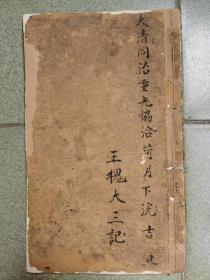 大清同治重光協洽荷月下浣吉旦
王槐大三記